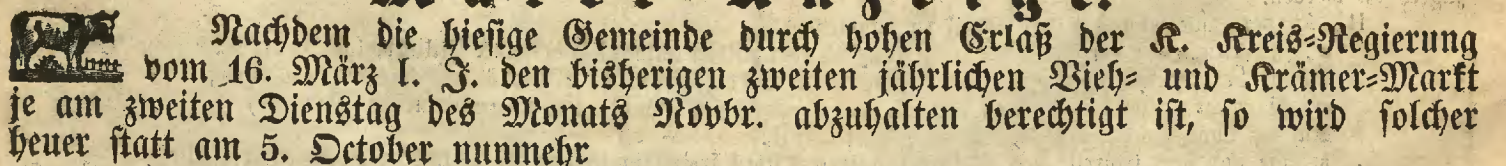 Nachdem die hiesige Gemeinde durch hohen Erlaß der K. Kreis-Regierung
vom 16. März l. J. den bisherigen zweiten jährlichen Vieh- und Krämer-Markt
je am zweiten Dienstag des Monats Novbr. abzuhalten berechtigt ist, so wird solcher
heuer statt am 5. October nunmehr